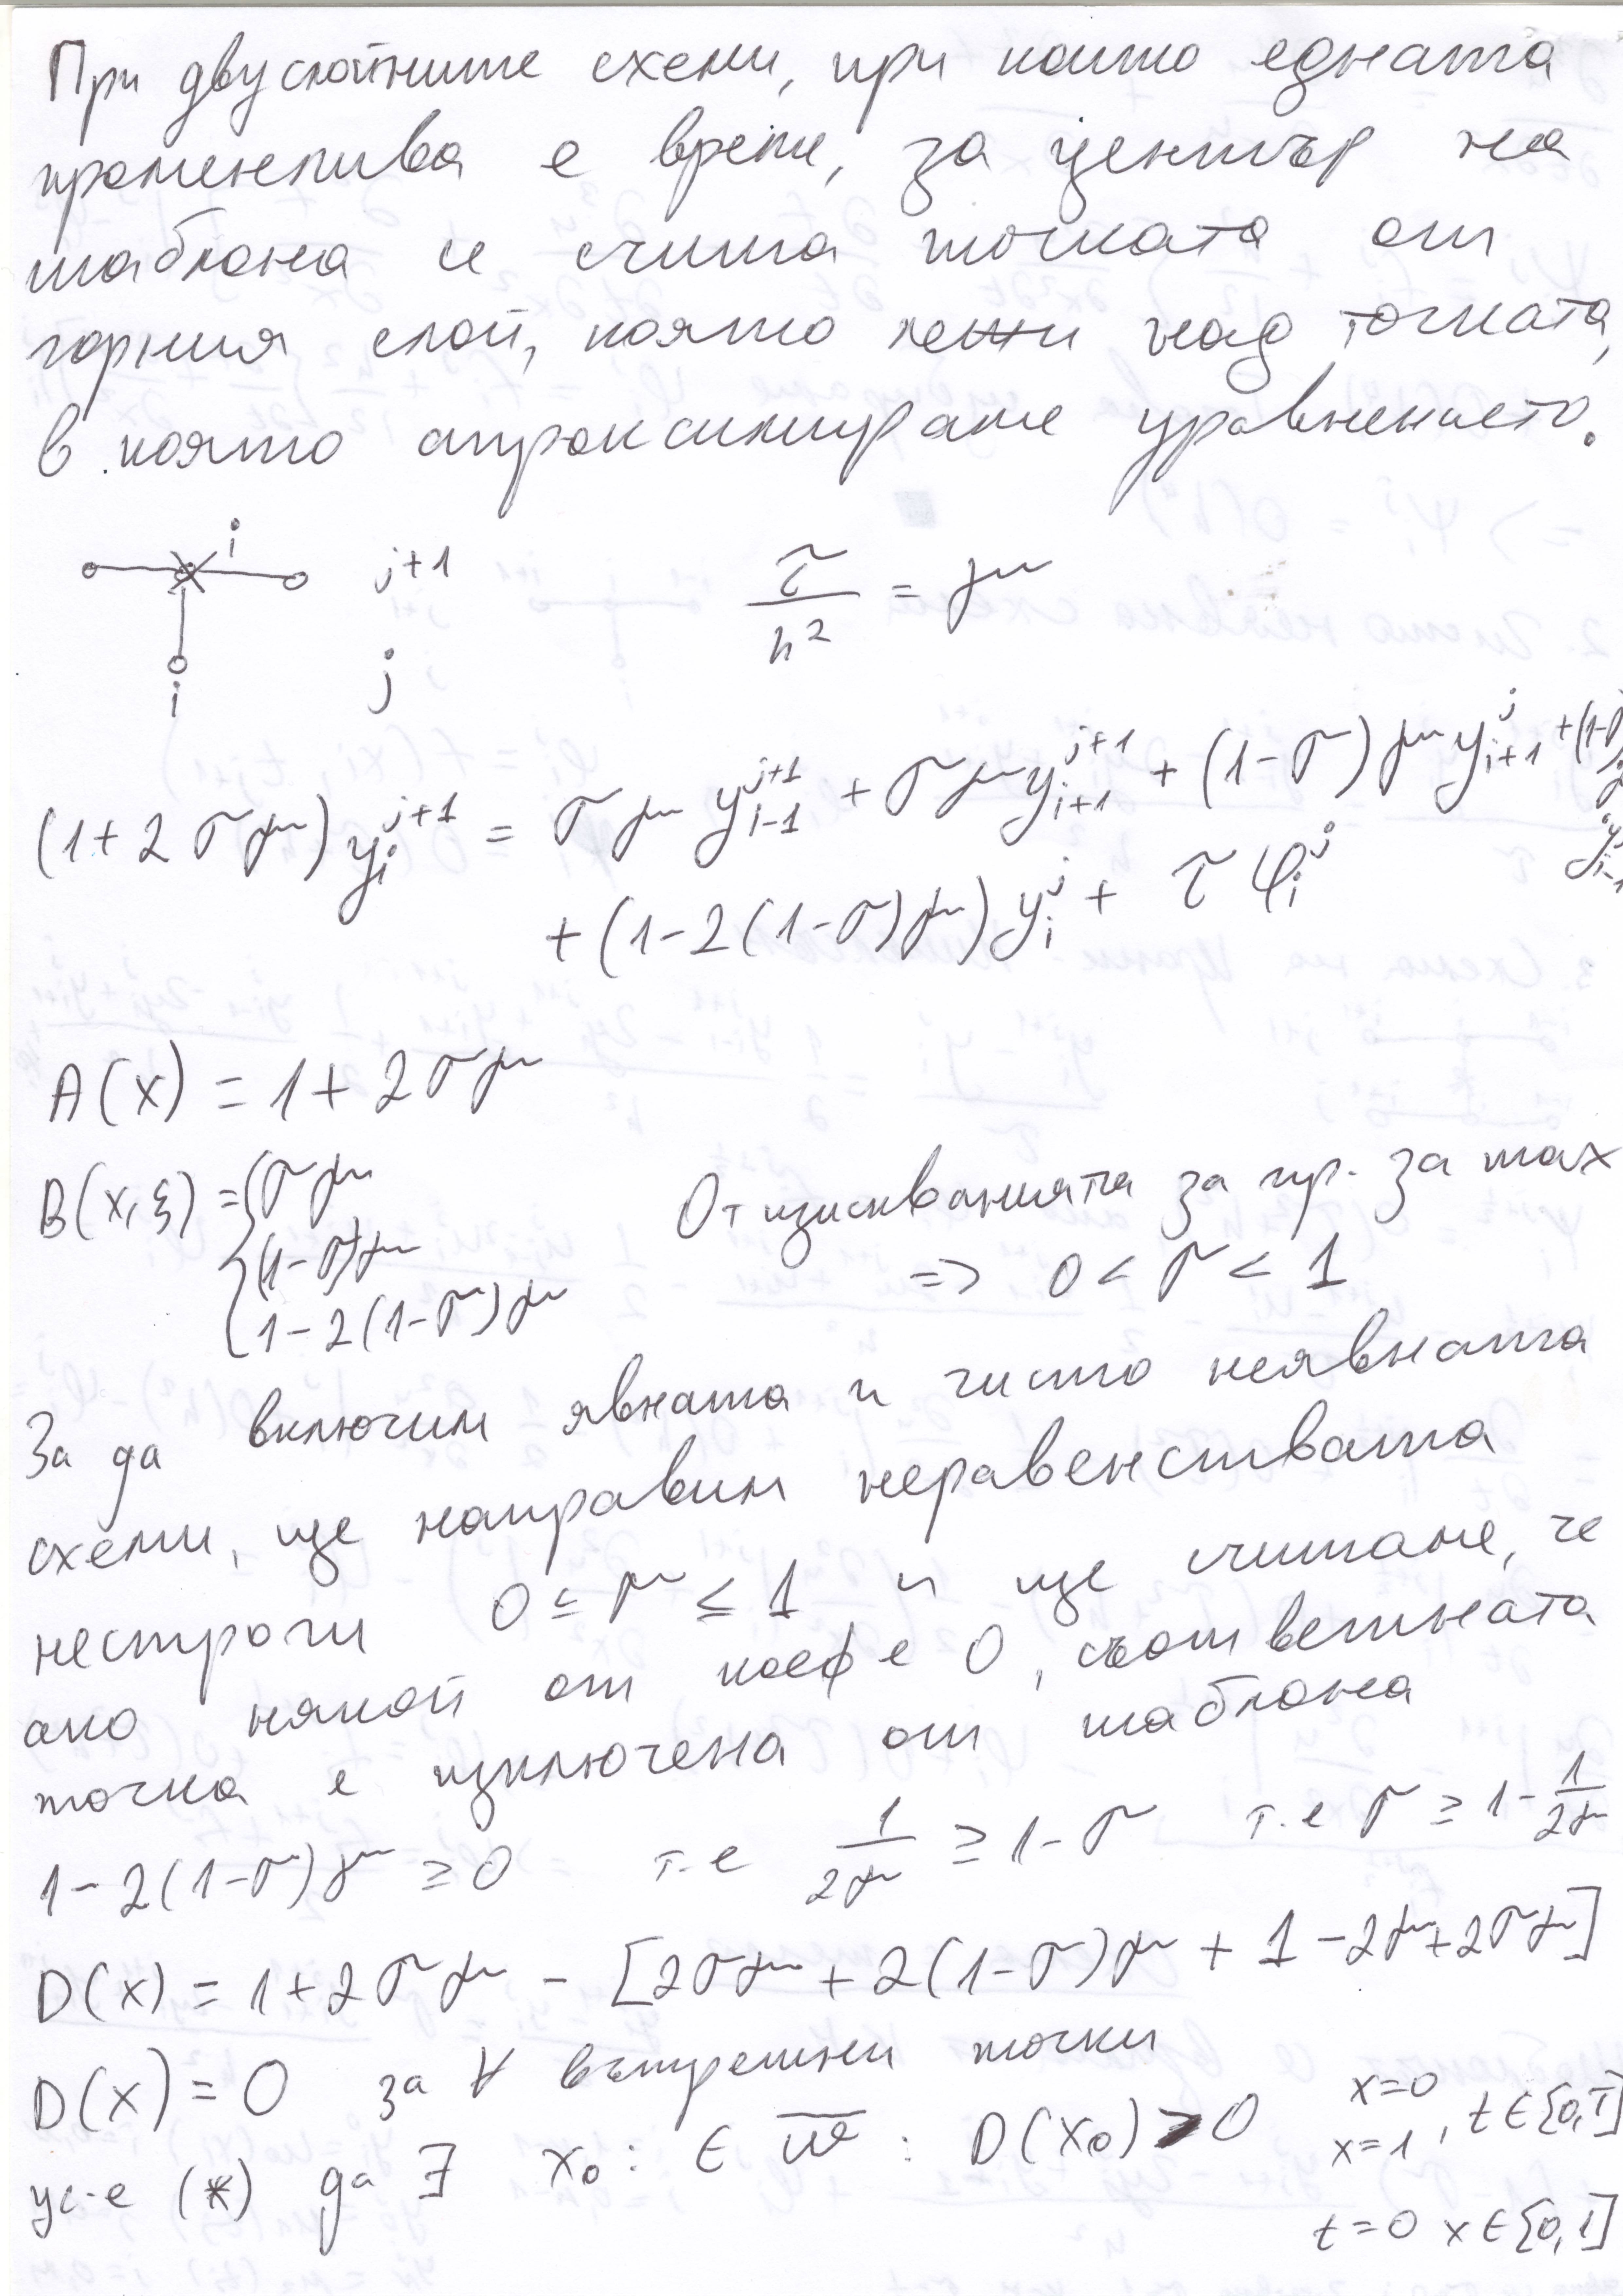 При двуслойните схеми, при които едната
променлива е време, за център на
шаблона се счита точката от
горния слой, която лежи над точката,
в която апроксимираме уравнението.
i
j+1
τ/h² = γ
j
i
(1+2σγ) y_i^{j+1} = σγ y_{i-1}^{j+1} + σγ y_{i+1}^{j+1} + (1-σ)γ y_{i+1}^j + (1-σ)γ y_{i-1}^j
+ (1-2(1-σ)γ) y_i^j + τ φ_i^j
A(x) = 1+2σγ
B(x,ξ) = { σγ
(1-σ)γ
1-2(1-σ)γ
От изискванията за пр. за max
=> 0 < σ < 1
За да включим явната и чисто неявната
схеми, ще направим неравенствата
нестроги 0 ≤ σ ≤ 1 и ще считаме, че
ако някой от коеф е 0, съответната
точка е изключена от шаблона
1-2(1-σ)γ ≥ 0 т.е 1/2γ ≥ 1-σ т.е σ ≥ 1 - 1/2γ
D(x) = 1+2σγ - [2σγ+2(1-σ)γ + 1 -2γ+2σγ]
D(x) = 0 за ∀ вътрешни точки
ус-е (*) да ∃ x₀ : ∈ ω̅ : D(x₀) > 0
x=0
x=1 , t∈[0,T]
t=0 x∈[0,1]